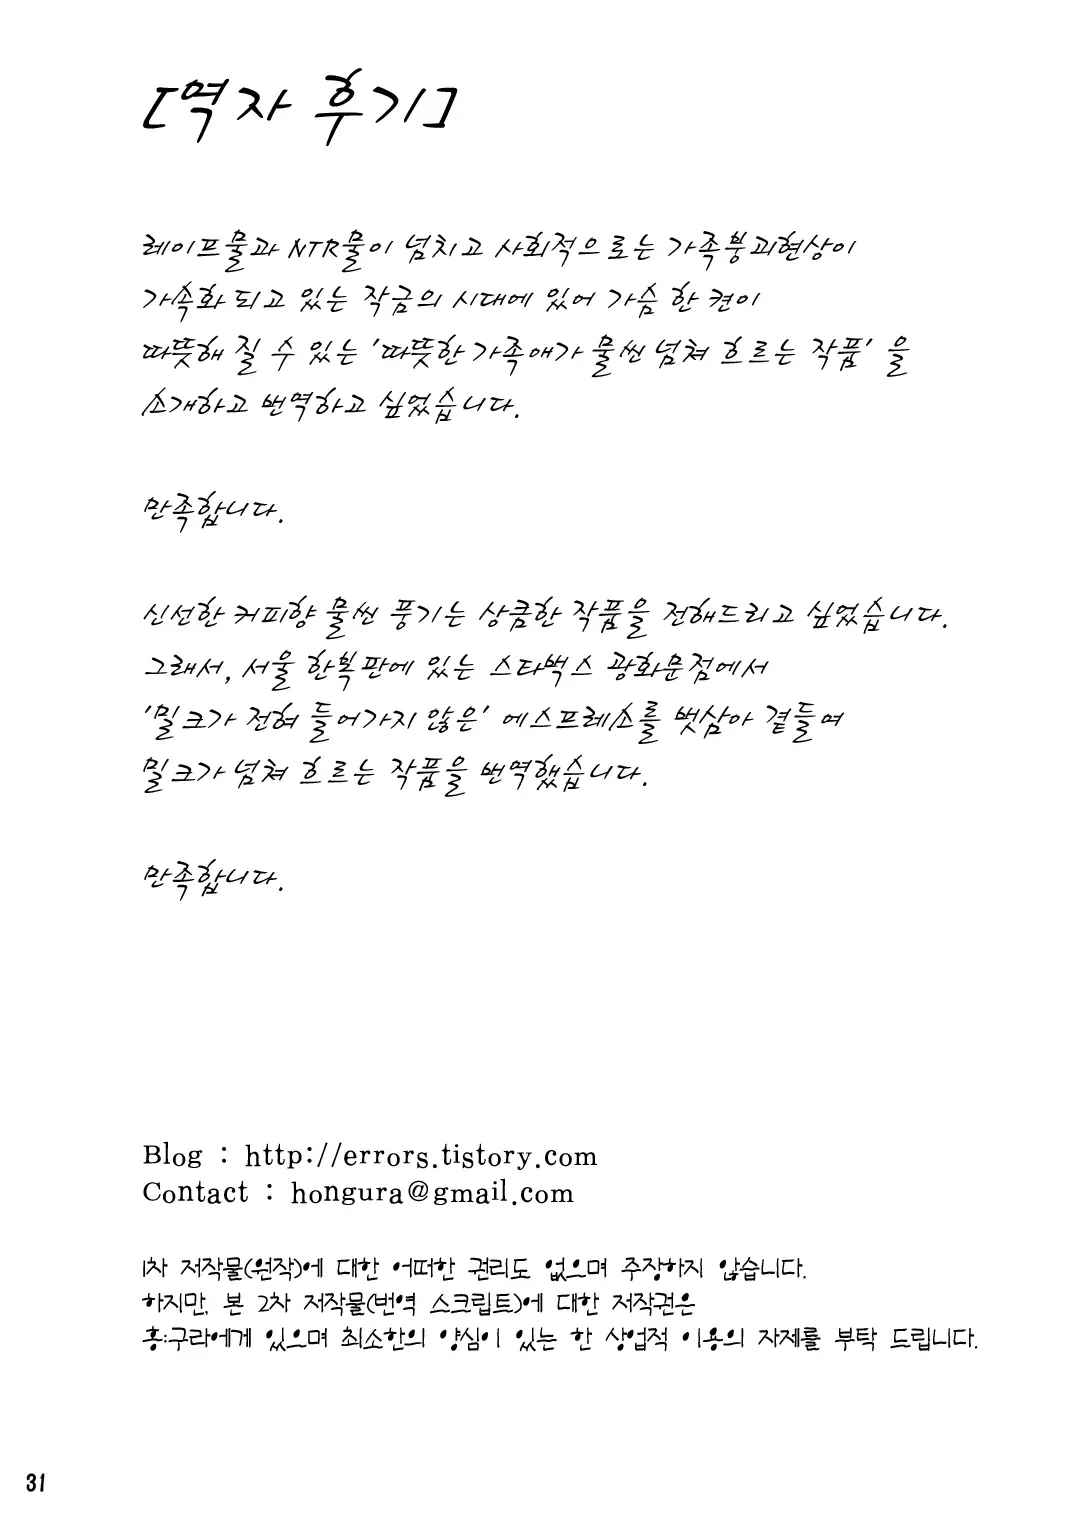 [역자 후기]
레이프물과 NTR물이 넘치고 사회적으로는 가족붕괴현상이
가속화 되고 있는 작금의 시대에 있어 가슴 한 켠이
따뜻해 질 수 있는 '따뜻한 가족애가 물씬 넘쳐 흐르는 작품' 을
소개하고 번역하고 싶었습니다.
만족합니다.
신선한 커피향 물씬 풍기는 상큼한 작품을 전해드리고 싶었습니다.
그래서, 서울 한복판에 있는 스타벅스 광화문점에서
'밀크가 전혀 들어가지 않은' 에스프레소를 벗삼아 곁들여
밀크가 넘쳐 흐르는 작품을 번역했습니다.
만족합니다.
Blog : http://errors.tistory.com
Contact : hongura@gmail.com
1차 저작물(원작)에 대한 어떠한 권리도 없으며 주장하지 않습니다.
하지만, 본 2차 저작물(번역 스크립트)에 대한 저작권은
홍:구라에게 있으며 최소한의 양심이 있는 한 상업적 이용의 자제를 부탁 드립니다.
31